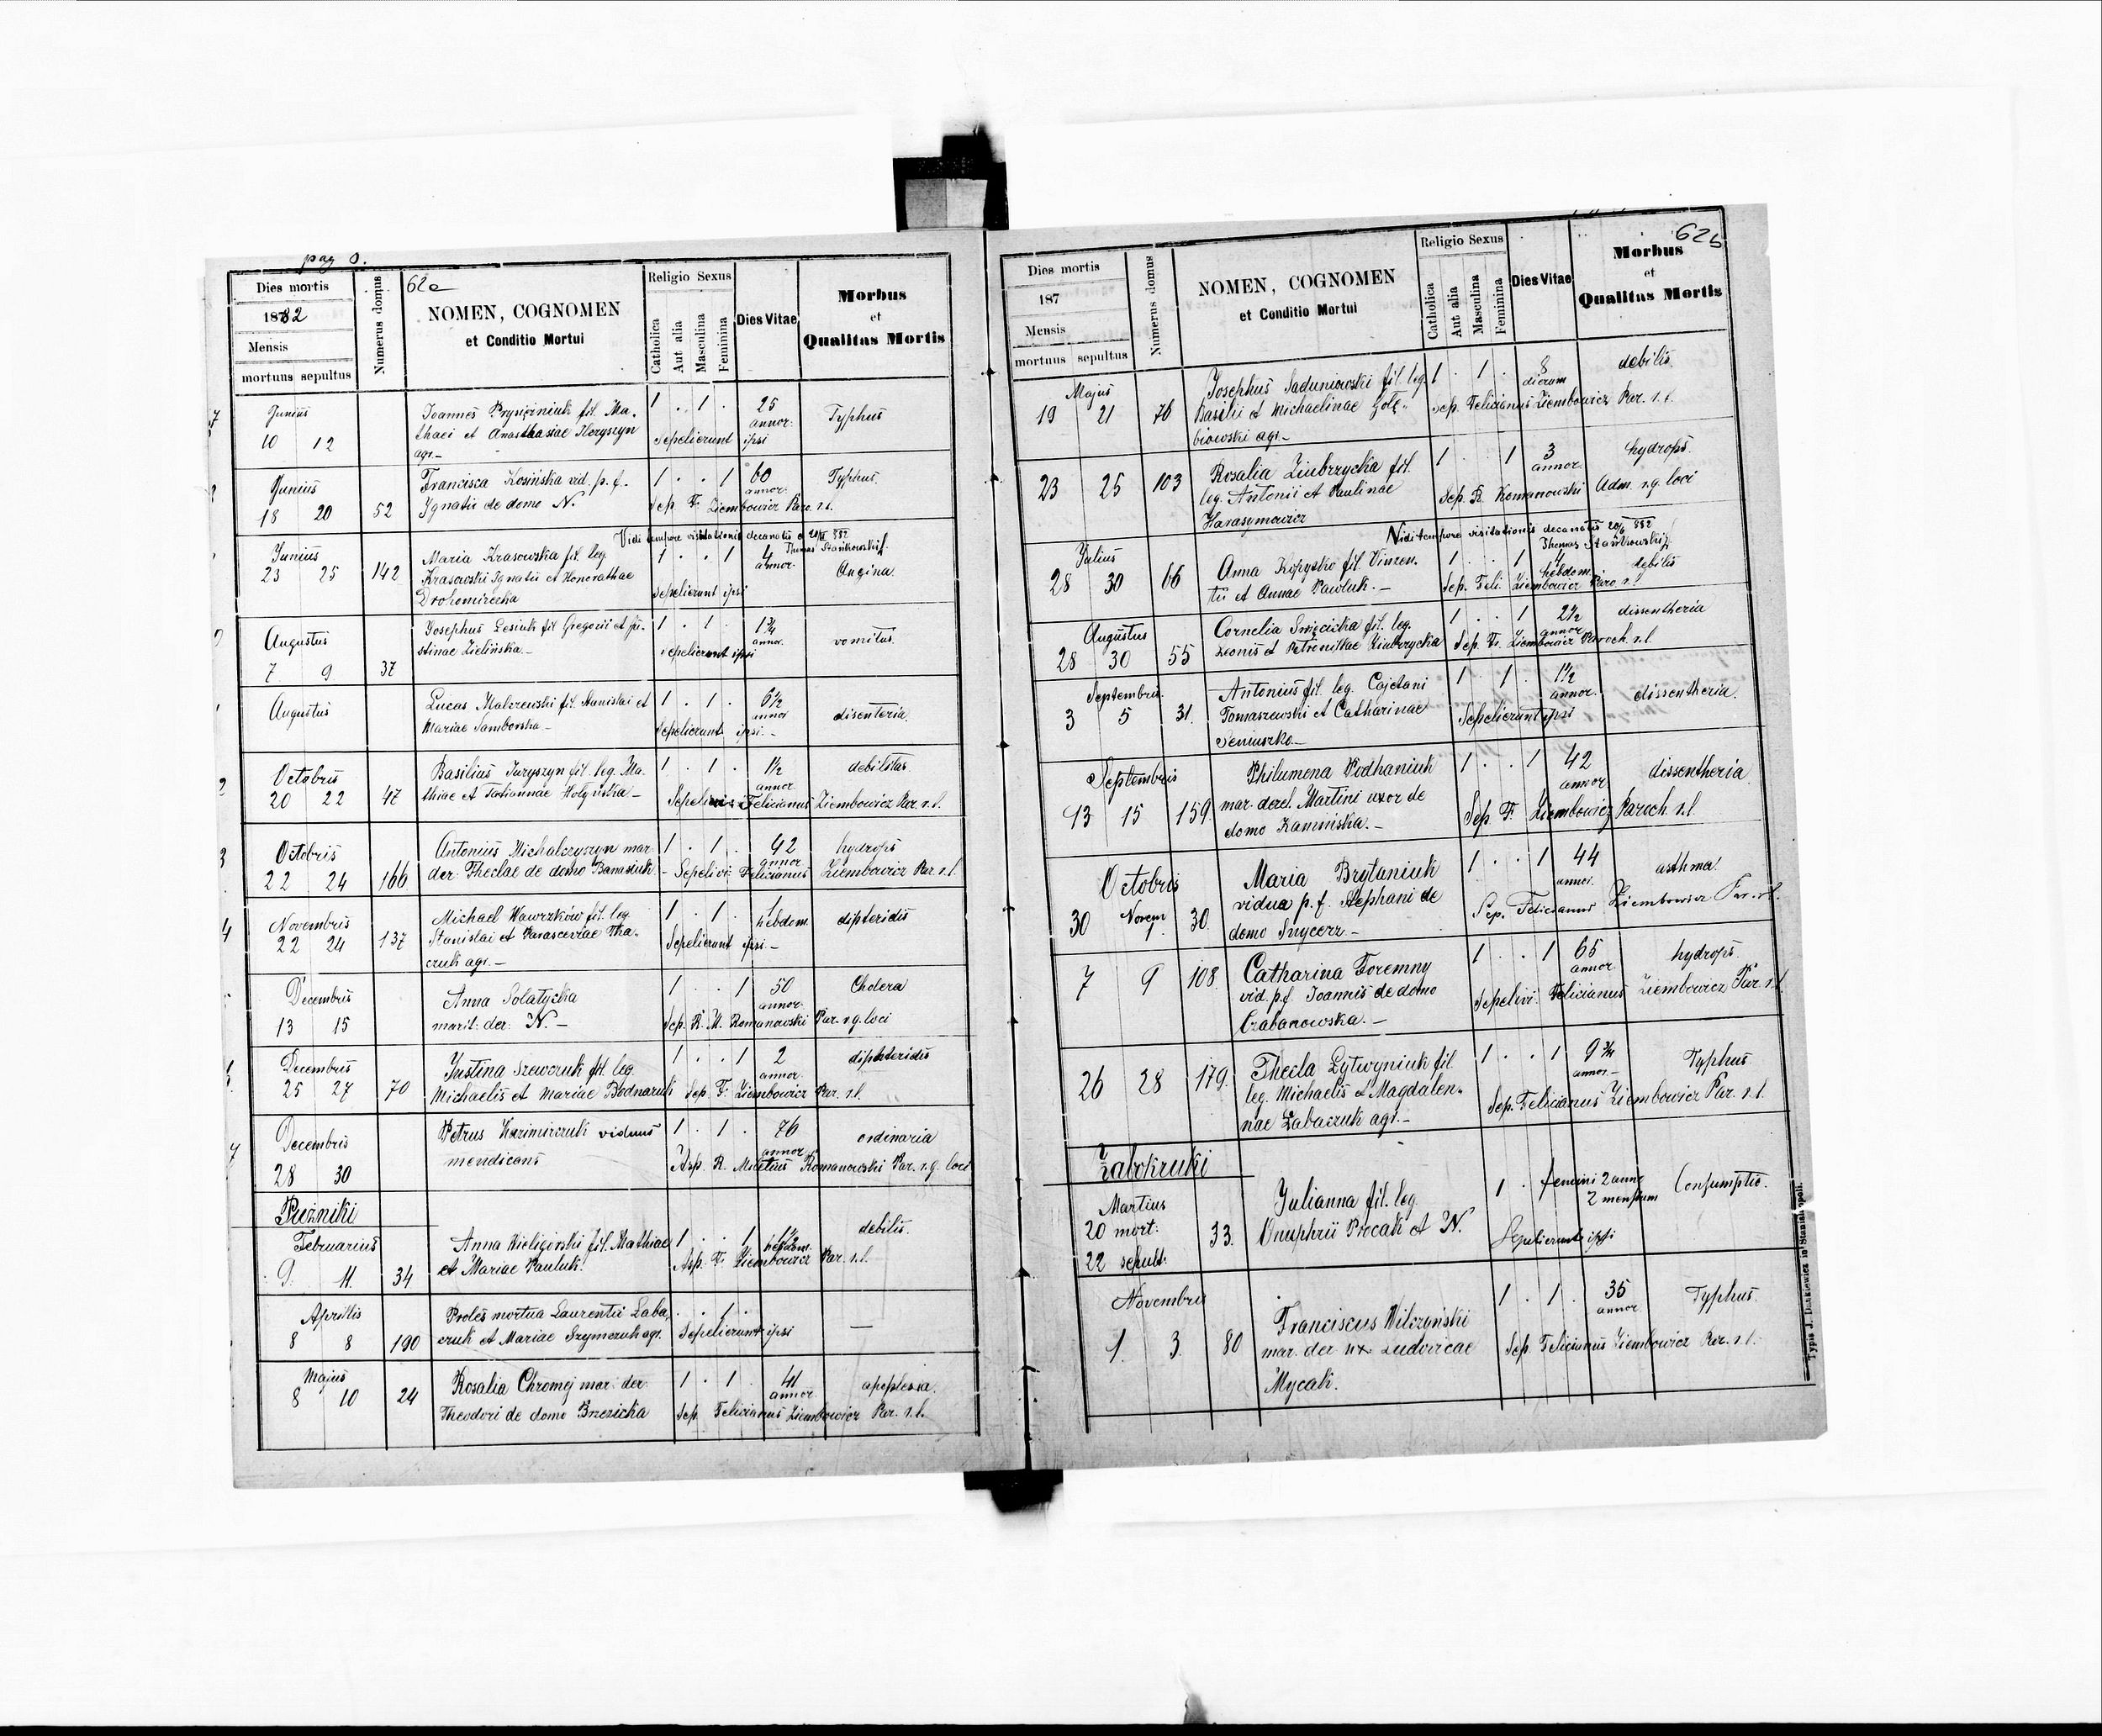 pag 8.
62a
Dies mortis
1882
Mensis
mortuus sepultus
Numerus domus
NOMEN, COGNOMEN
et Conditio Mortui
Religio Sexus
Catholica
Aut alia
Masculina
Feminina
Dies Vitae
Morbus
et
Qualitas Mortis
Junius
10 12
Joannes fil. Ma-
thaei et Anasthasiae
agr.-
1 . 1 .
25
annor.
Sepelierunt ipsi
Typhus
Junius
18 20 52
Francisca Kosińska vid. p. f.
Ignatii de domo N.
1 . . 1
60
annor.
Sep. F. Ziembowicz Paro. r.l.
Typhus
Vidi tempore visitationis decanatis 882
Thomas Stańkowski
Junius
23 25 142
Maria Krasowska fil. leg.
Krasowski Ignatii et Honorathae
Drohomirecka
1 . . 1
4
annor.
Sepelierunt ipsi
Angina
Augustus
7 9 37
Josephus Lesiuk fil Gregorii et Ju-
stinae Zielińska.-
1 . 1 .
1¾
annor.
sepelierunt ipsi
vomitus.
Augustus
Lucas Malczewski fil. Stanislai et
Mariae Samborska-
1 . 1 .
6½
annor
Sepelierunt ipsi.-
disenteria.
Octobris
20 22 47
Basilius Juryszyn fil. leg. Ma-
thiae et Tatiannae
1 . 1 .
1½
annor.
Sepelivi: Felicianus Ziembowicz Par. r.l.
debilitas
Octobris
22 24 166
Antonius Michalczyszyn mar.
der: Theclae de domo Banasiuk.
1 . 1 .
42
annor
- Sepelivi: Felicianus Ziembowicz Par. r.l.
hydrops
Novembris
22 24 137
Michael Wawrzków fil. leg.
Stanislai et Parasceviae Tka-
czuk agr.-
1 . 1 .
1
hebdom.
Sepelierunt ipsi.-
dipteridis
Decembris
13 15
Anna Solatycka
marit: der: N.-
1 . . 1
50
annor.
Sep. R. M. Romanowski Par. r.g. loci
Cholera
Decembris
25 27 70
Justina Szewczuk fil. leg.
Michaelis et Mariae Bodnaruk
1 . . 1
2
annor.
Sep. F. Ziembowicz Par. r.l.
diphteridis
Decembris
28 30
Petrus Kazimirczuk viduus
mendicans
1 . 1 .
76
annor
R. Romanowski Par. r.g. loci
ordinaria
Puźniki
Februarius
9. 11. 34
Anna fil. Mathiae
et Mariae Pauluk.
1 . . 1
hebdom.
F. Ziembowicz Par. r.l.
debilis.
Aprilis
8 8 190
Proles mortua Laurentii Laba-
czuk et Mariae Szymczuk agr.
. . 1 .
Sepelierunt ipsi
—
Majus
8 10 24
Rosalia Chromej mar: der:
Theodori de domo Brzezicka
1 . 1 .
41
annor.
Sep. Felicianus Ziembowicz Par. r.l.
apoplexia.
62b
Dies mortis
187
Mensis
mortuus sepultus
Numerus domus
NOMEN, COGNOMEN
et Conditio Mortui
Religio Sexus
Catholica
Aut alia
Masculina
Feminina
Dies Vitae
Morbus
et
Qualitas Mortis
Majus
19 21 76
Josephus Saduniowski fil. leg.
Basilii et Michaelinae Golę-
biowski agr.-
1 . 1 .
8
dierum
Sep. Felicianus Ziembowicz Par. r.l.
debilis.
23 25 103
Rosalia Ziubrzycka fil.
leg. Antonii et Paulinae
Harasymowicz
1 . 1
3
annor.
Sep. R. Romanowski Adm. r.g. loci
hydrops.
Vidi tempore visitationis decanatis 882
Thomas Stańkowski
Julius
28 30 66
Anna Kopystko fil. Vincen-
tii et Annae Pawluk.-
1 . . 1
4
hebdom.
Sep. Feli. Ziembowicz Paro r.l.
debilis
Augustus
28 30 55
Cornelia Święcicka fil. leg.
Leonis et Petronillae Ziubrzycka
1 . . 1
2½
annor
Sep. F. Ziembowicz Paroch. r.l.
dissentheria
Septembris.
3 5 31.
Antonius fil. leg. Cajetani
Tomaszewski et Catharinae
Seniuszko.-
1 . 1 .
1½
annor.
Sepelierunt ipsi
dissentheria.
Septembris
13 15 159.
Philumena Podhaniuk
mar. derel. Martini uxor de
domo Kamińska.-
1 . . 1
42
annor.
Sep. F. Ziembowicz Paroch. r.l.
dissentheria.
Octobris
30 Novem 1. 30.
Maria Brytaniuk
vidua p. f. Stephani de
domo Snycerz.-
1 . . 1
44
annor.
Sep. Felicianus Ziembowicz Par. r.l.
asthma.
7 9 108.
Catharina Foremny
vid. p.f. Joannis de domo
Czabanowska.-
1 . . 1
65
annor.
Sepelivi: Felicianus Ziembowicz Par. r.l.
hydrops.
26 28 179.
Thecla Lytwyniuk fil.
leg. Michaelis et Magdalen-
nae Labaczuk agr.-
1 . . 1
9¾
annor.-
Sep. Felicianus Ziembowicz Par. r.l.
Typhus
Żabokruki
Martius
20 mort:
22 sepult:
33.
Julianna fil. leg.
Onuphrii Procak et N.
1 . femini 2 ann
2 mensium
Sepelierunt ipsi
Consumptio.
Novembris
1. 3. 80
Franciscus Wilczyński
mar. der ux Ludovicae
Mycak.
1 . 1 .
35
annor
Sep. Felicianus Ziembowicz Par. r.l.
Typhus.
Typis J. Dankiewicz in Stanislapoli.